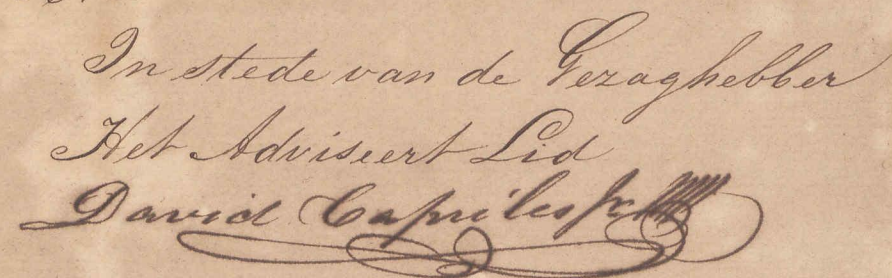 In stede van de Gezaghebber
Het Adviseert Lid
David Capriles Jr